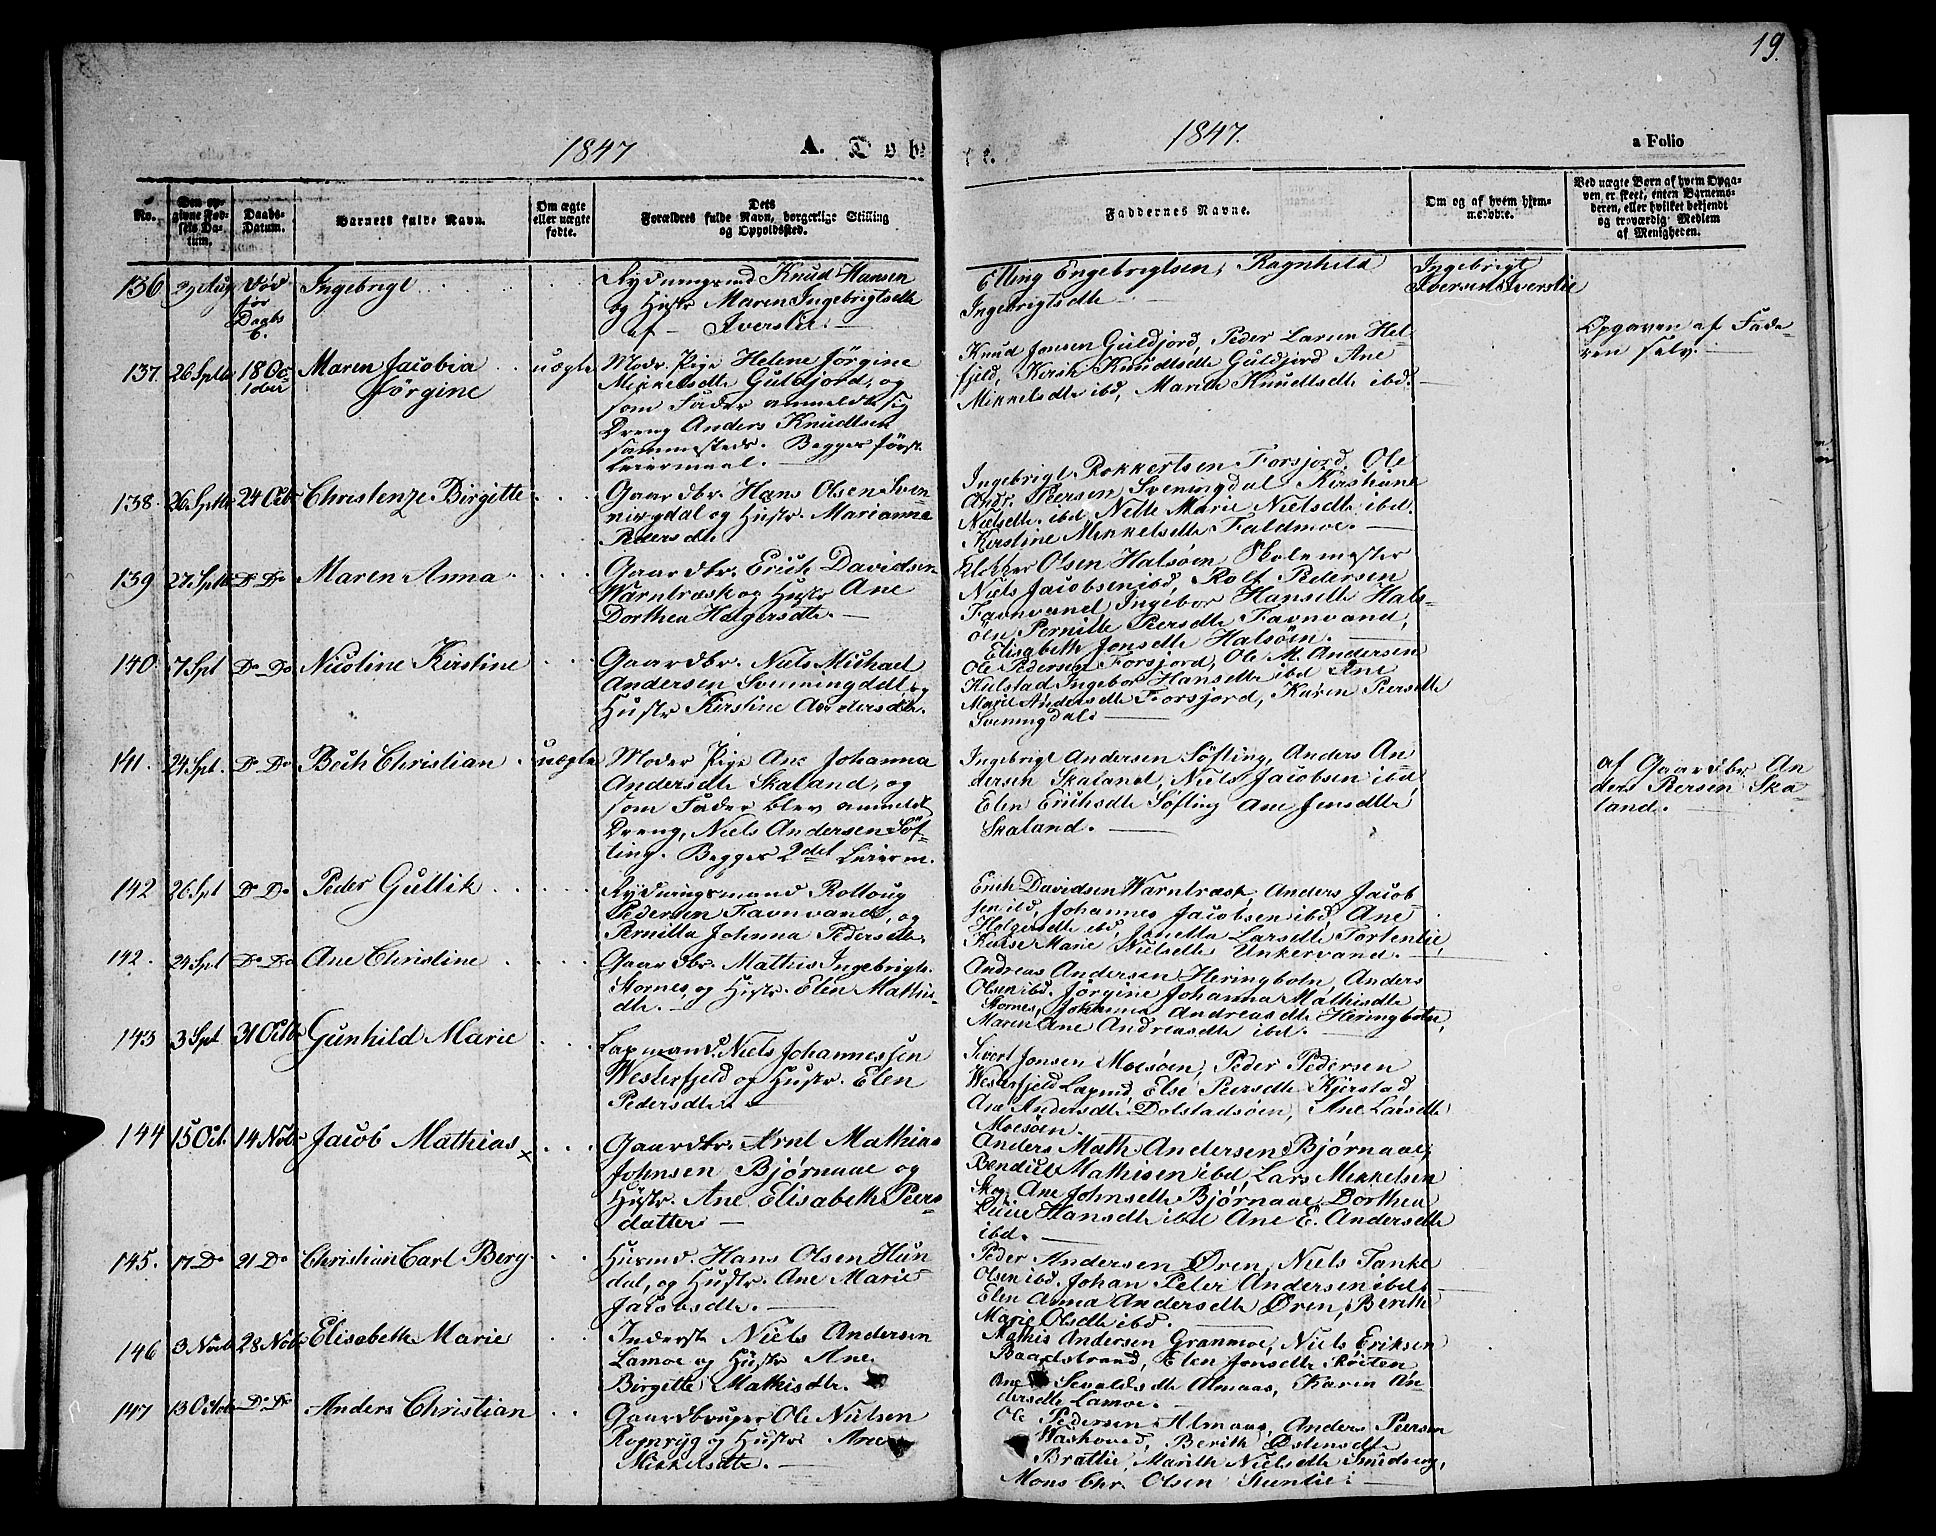 19.
1847
A. Døbte.
1847.
a Folio
No.
Den opgivne Fødsels Datum.
Daabs-Datum.
Barnets fulde Navn.
Om ægte eller uægte fødte.
Dets Forældres fulde Navn, borgerlige Stilling og Opholdssted.
Faddernes Navne.
Om og af hvem hjemmedøbte.
Ved uægte Børn af hvem Opgaven er skeet, enten Barnemoderen, eller hvilket bekjendt og troværdig Medlem af Menigheden.
136 Aug Død før Daabs Ingebrigt
Rydningsmd Knud Hansen
og Hustr Maren Ingebrigtsdtr
af Iverslie.
Elling Engebrigtsen, Ragnhild
Ingebrigtsdtr
Ingebrigt
Iversen Iverslie
137. 26 Sptbr 18 October Maren Jacobia Jørgine uægte
Moder Pige Helene Jørgine
Mikkelsdtr Guldfjord, og
som Fader anmeldte sig
Dreng Anders Knudtsen
sammesteds. Begges første
Leiermaal.
Knud Jonsen Guldfjord, Peder Larsen Hel-
fjeld, Kirst Knudtsdtr Guldfjord Ane
Mikkelsdtr ibd, Marith Knudtsdtr ibd.
Opgaven af Fade-
ren selv.
138. 26 Sptbr 24 Octb Christenze Birgitte
Gaardbr. Hans Olsen Sven-
ningdal og Hustr. Marianne
Pedersdtr
Ingebrigt Rokkertsen Forsjord, Ole
Andr. Peersen Sveningdal Kirstiane
Nielsdtr. ibd Nelle Marie Nielsdtr ibd.
Kirstine Mikkelsdtr Faldmoe.
139 27 Sptb Do Do Maren Anna
Gaardbr. Erich Davidsen
Warntræsk og Hustr Ane
Dorthea Holgersdtr.
Klokker Olsen Halsøen, Skolemester
Niels Jacobsen ibd, Rolf Pedersen
Favnvand, Ingebor Hansdtr Hals-
øen Pernille Peersdtr Favnvand,
Elisabeth Jonsdtr Halsøen.
140. 7 Spt Do Do Nicoline Kirstine
Gaardbr. Niels Michael
Andersen Svenningdal, og
Hustr Kirstine Andersdtr.
Ole Pedersen Forsjord, Ole M. Andersen
Kulstad Ingebor Hansdtr ibd Ane
Marie Andersdtr Forsjord, Karen Peersdtr
Sveningdal
141. 24 Spt. Do Do Bech Christian uægte
Moder Pige Ane Johanna
Andersdtr Skaland, og
som Fader blev anmeldt
Dreng, Niels Andersen Søf-
ting. Begges 2det Leierm.
Ingebrigt Andersen Søfting, Anders An-
dersen Skaland, Niels Jacobsen ibd
Elen Erichsdtr Søfting Ane Jensdtr
Skaland.
af Gaardbr. An
ders Peersen Ska-
land.
142 26 Spt Do Do Peder Gullik
Rydningsmand Rolloug
Pedersen Favnvand, og
Pernilla Johnna Pedersdtr.
Erich Davidsen Warntræsk, Anders Jacob
sen ibd, Johannes Jacobsen ibd, Ane
Holgersdtr ibd, Jonetta Larsdtr Tortenlie,
Marie Nielsdtr Unkervand.
142. 24 Spt Do Do Ane Christine
Gaardbr. Mathis Ingebrigts.
Stornes, og Hustr. Elen Mathis-
dtr.
Andreas Andersen Heringbotn, Anders
Olsen ibd. Jørgine Johanna Mathisdtr
Stornes, Johanna Andreasdtr Heringbotn,
Maren Ane Andreasdtr ibd.
143 3 Spt 31 Octb Gunhild Marie
Lapmand. Niels Johannessen
Westerfjeld og Hustr. Elen
Pedersdtr.
Sivert Jonsen Mosøen, Peder Pedersen
Westerfjeld Lapmd, Else Peersdtr Kjerstad
Ane Andersdtr Dolstadsøen, Ane Larsdtr
Mosøen.
144 15 Oct. 14 Nob. Jacob Mathias ×
Gaardbr. Arnt Mathias
Johnsen Bjørnaae og
Hustr. Ane Elisabeth Peers-
datter
Anders Math Andersen Bjørnaae,
Bendict Mathisen ibd, Lars Mikkelsen
Skog, Ane Johnsdtr Bjørnaae, Dorthea
Lucie Hansdtr ibd Ane E. Andersdtr
ibd.
145. 17 Do 21 Do Christian Carl Berg
Husmd. Hans Olsen Hun
dal, og Hustr. Ane Marie
Jacobsdtr.
Peder Andersen Øren, Niels Tanke
Olsen ibd. Johan Peter Andersen ibd
Elen Anna Andersdtr Øren, Berith
Marie Olsdtr ibd.
146 3 Novb 28 Nob. Elisabeth Marie
Inderst Niels Andersen
Lamoe og Hustr Ane
Birgitte Mathisdtr.
Mathis Andersen Granmoe, Niels Eriksen
Baadstrand, Elen Jonsdtr
Ane Sevaldsdtr Almaas, Karen An-
dersdtr Lamoe.
147 13 Octob Do Do Anders Christian
Gaardbruger Ole Nielsen
Rognryg og Hustr Ane
Mikkelsdtr.
Ole Pedersen Almaas, Anders Peersen
Waskoved, Berith Østensdtr
Bratlie, Marith Nielsdtr Smidseng,
Mons Chr. Olsen Stenlie.